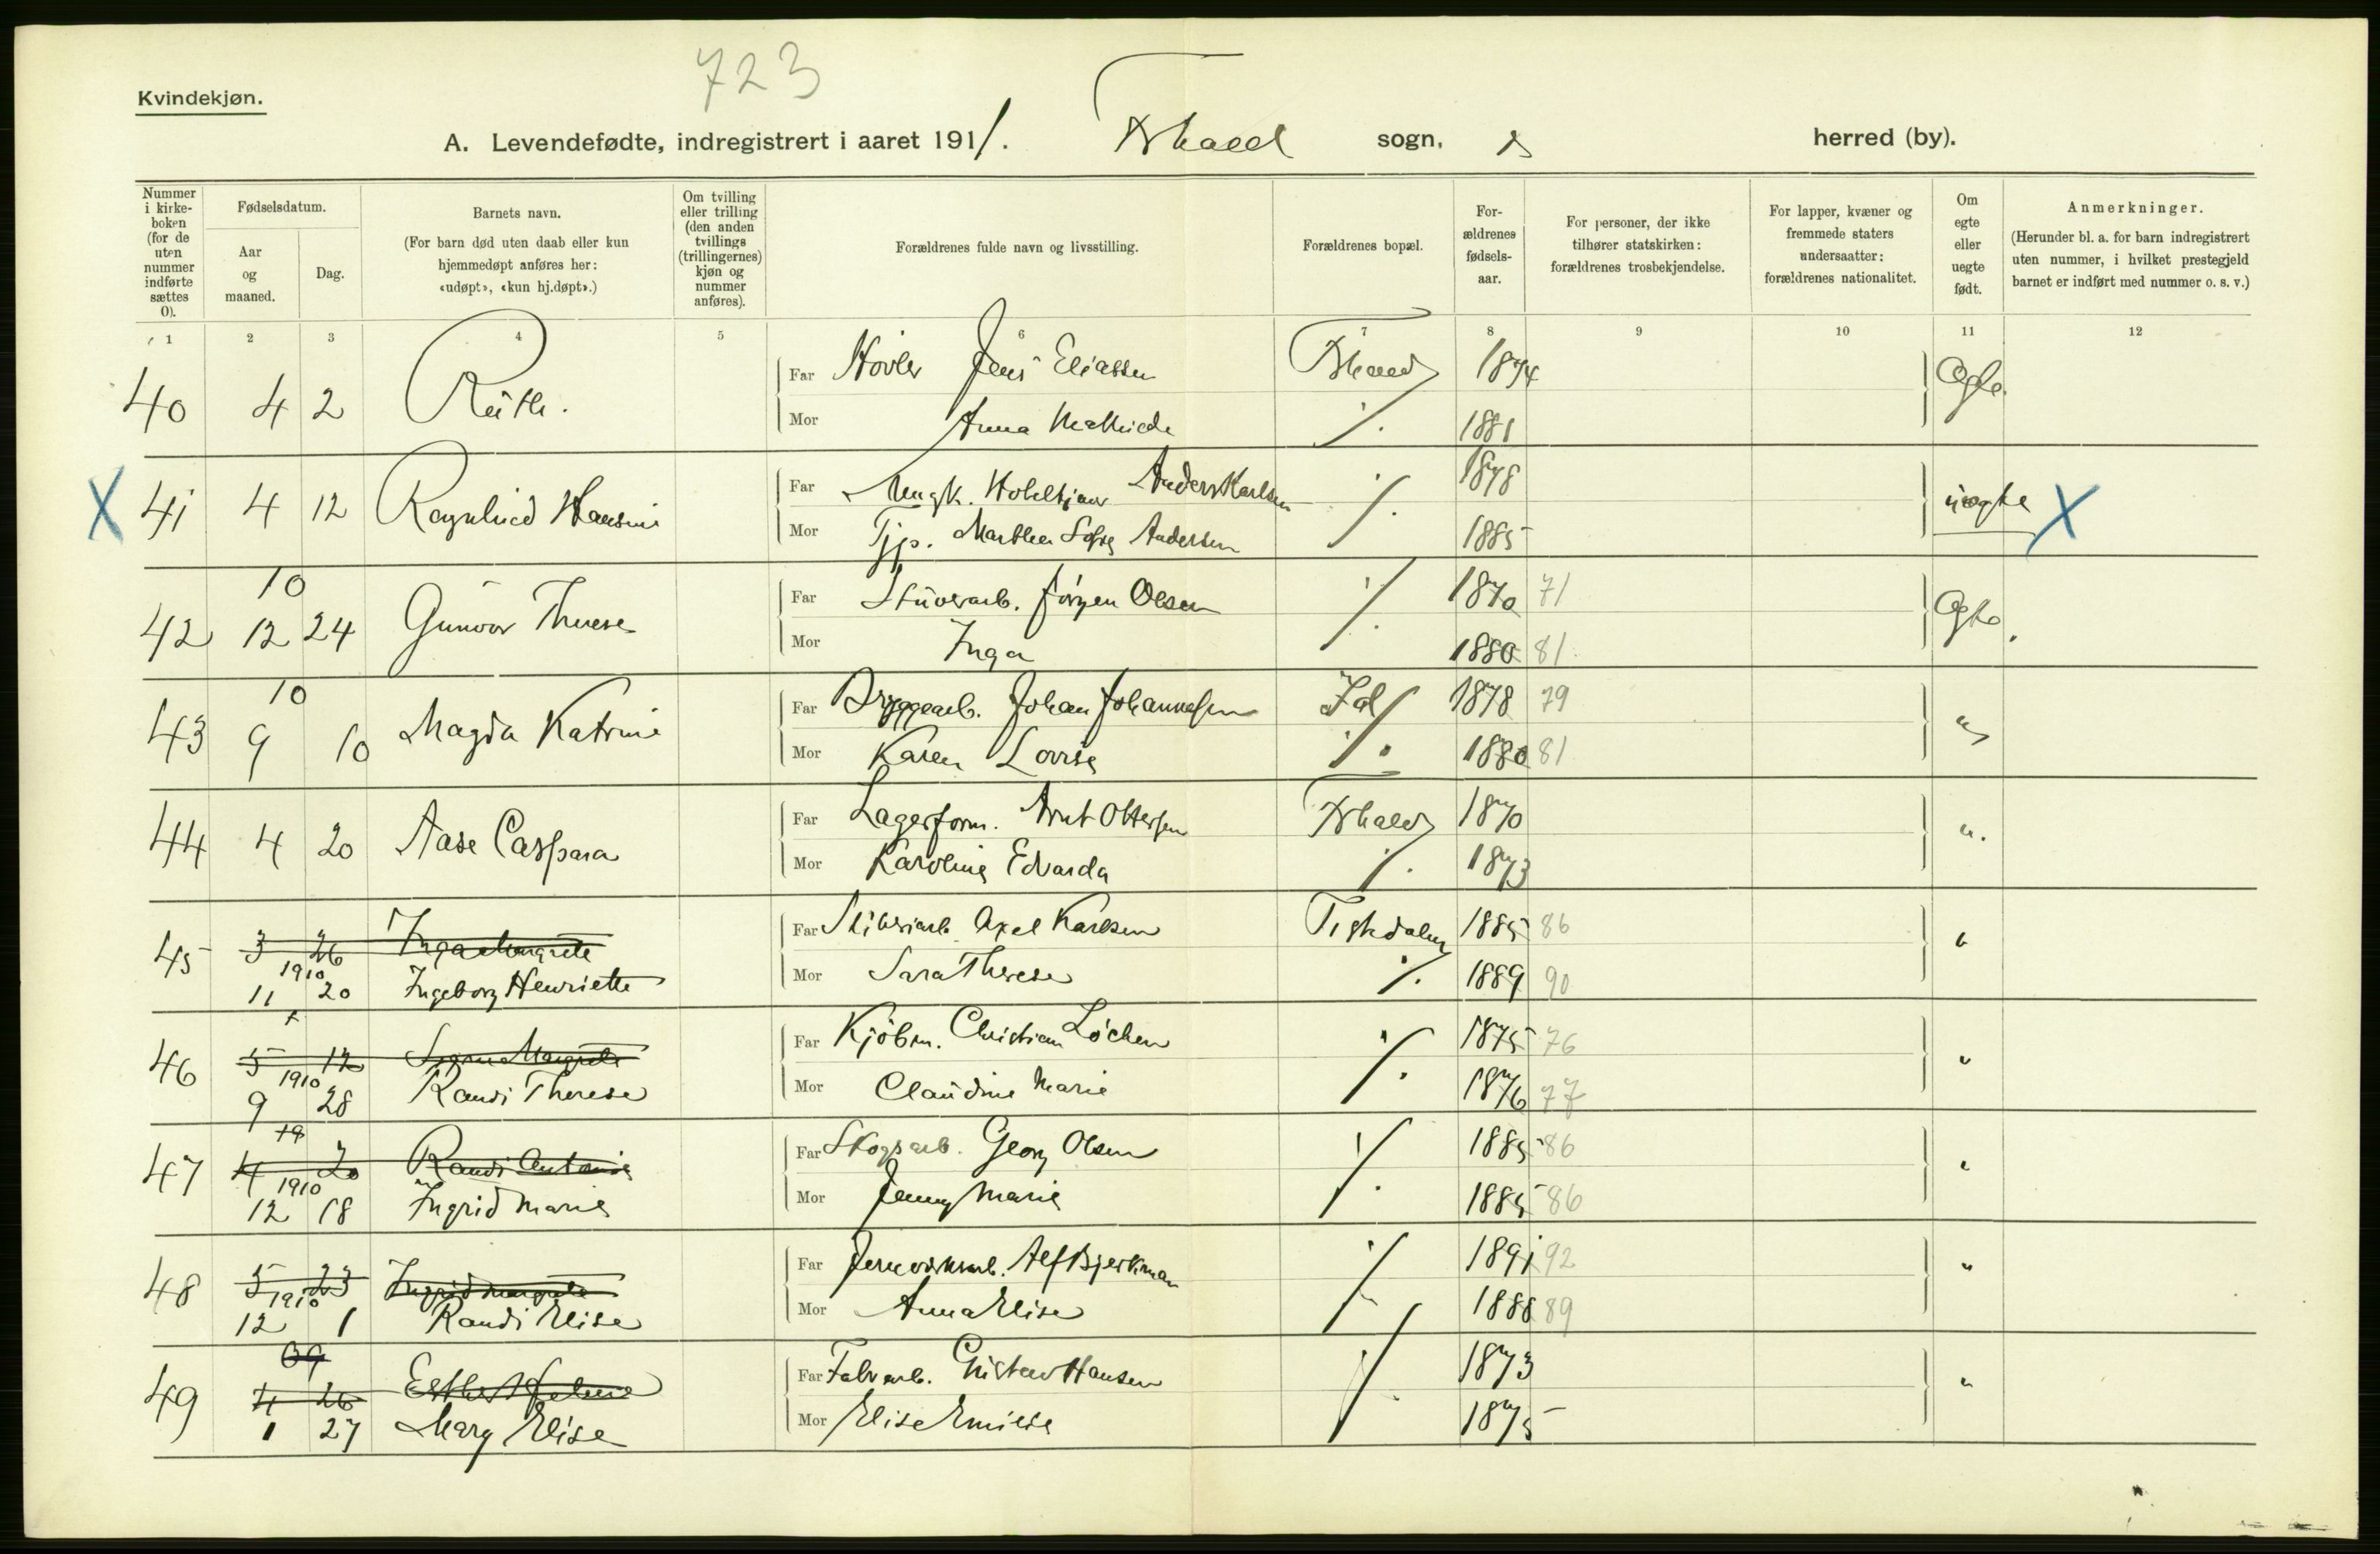 723
Kvindekjøn.
A. Levendefødte, indregistrert i aaret 1911. Fr.hald sogn, herred (by).
Nummer i kirke-boken (for de uten nummer indførte sættes 0).
Fødselsdatum.
Aar og maaned.
Dag.
Barnets navn.
(For barn død uten daab eller kun hjemmedøpt anføres her: «udøpt», «kun hj.døpt».)
Om tvilling eller trilling (den anden tvillings (trillingernes) kjøn og nummer anføres).
Forældrenes fulde navn og livsstilling.
Forældrenes bopæl.
For-ældrenes fødsels-aar.
For personer, der ikke tilhører statskirken: forældrenes trosbekjendelse.
For lapper, kvæner og fremmede staters undersaatter: forældrenes nationalitet.
Om egte eller uegte født.
Anmerkninger.
(Herunder bl. a. for barn indregistrert uten nummer, i hvilket prestegjeld barnet er indført med nummer o. s. v.)
1 2 3 4 5 6 7 8 9 10 11 12
40 4 2 Ruth. Far Høvler Jens Eliassen Fr.hald 1874 Egte.
Mor Anna Mathilde ./. 1881
X 41 4 12 Ragnhild Hansine Far Ungk. Anders Karlsen ./. 1878 uegte X
Mor Tjp. Marthea Sofie Andersen 1885
10
42 12 24 Gunvor Therese Far Stuverarb. Jørgen Olsen ./. 1870 71 Egte.
Mor Inga 1880 81
10
43 9 10 Magda Katrine Far Bryggearb. Johan Johannesen Id 1878 79 "
Mor Karen Lovise ./. 1880 81
44 4 20 Aase Caspara Far Lagerform. Arnt Ottersen Fr.hald 1870 ".
Mor Karoline Edvarda ./. 1873
45 3 26 Inga Margrete Far Sliberiarb. Axel Karlsen Tistedalen 1885 86 "
1910
11 20 Ingeborg Henriette Mor Sara Therese ./. 1889 90
46 5 12 Signe Margrete Far Kjøbm. Christian Løchen ./. 1875 76 "
1910
9 28 Randi Therese Mor Claudine Marie 1876 77
10
47 4 20 Randi Antonie Far Skogsarb. Georg Olsen ./. 1885 86 "
1910
12 18 Ingrid Marie Mor Jenny Marie 1885 86
48 5 23 Ingrid Margrete Far Jernverksarb. Alf Bjerkman ./. 1891 92 "
1910
12 1 Randi Elise Mor Anna Elise 1888 89
09
49 4 26 Esther Helene Far Fabr.arb. Gustav Hansen ./. 1873 "
1 27 Mary Elise Mor Elise Emilie 1875